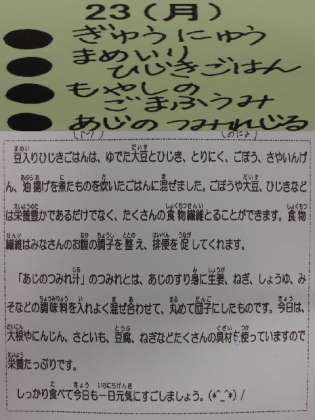 23(月)
ぎゅうにゅう
まめいり
ひじきごはん
もやしの
ごまふうみ
あじのつみれじる
豆入りひじきごはんは、ゆでた大豆とひじき、とりにく、ごぼう、さやいんげ
ん、油揚げを煮たものを炊いたごはんに混ぜました。ごぼうや大豆、ひじきなど
は栄養豊かであるだけでなく、たくさんの食物繊維とることができます。食物
繊維はみなさんのお腹の調子を整え、排便を促してくれます。
「あじのつみれ汁」のつみれとは、あじのすり身に生姜、ねぎ、しょうゆ、み
そなどの調味料を入れよく混ぜ合わせて、丸めて団子にしたものです。今日は、
大根やにんじん、さといも、豆腐、ねぎなどたくさんの具材を使っていますので
栄養たっぷりです。
しっかり食べて今日も一日元気にすごしましょう。(*^_^*)/